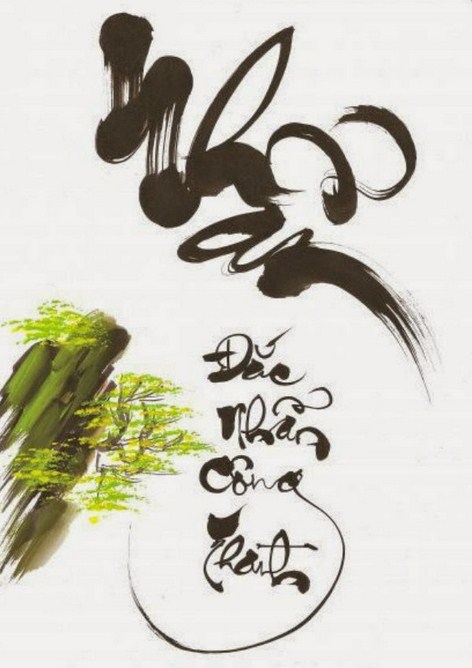 Nhẫn
Đắc
Nhẫn
Công
Thành